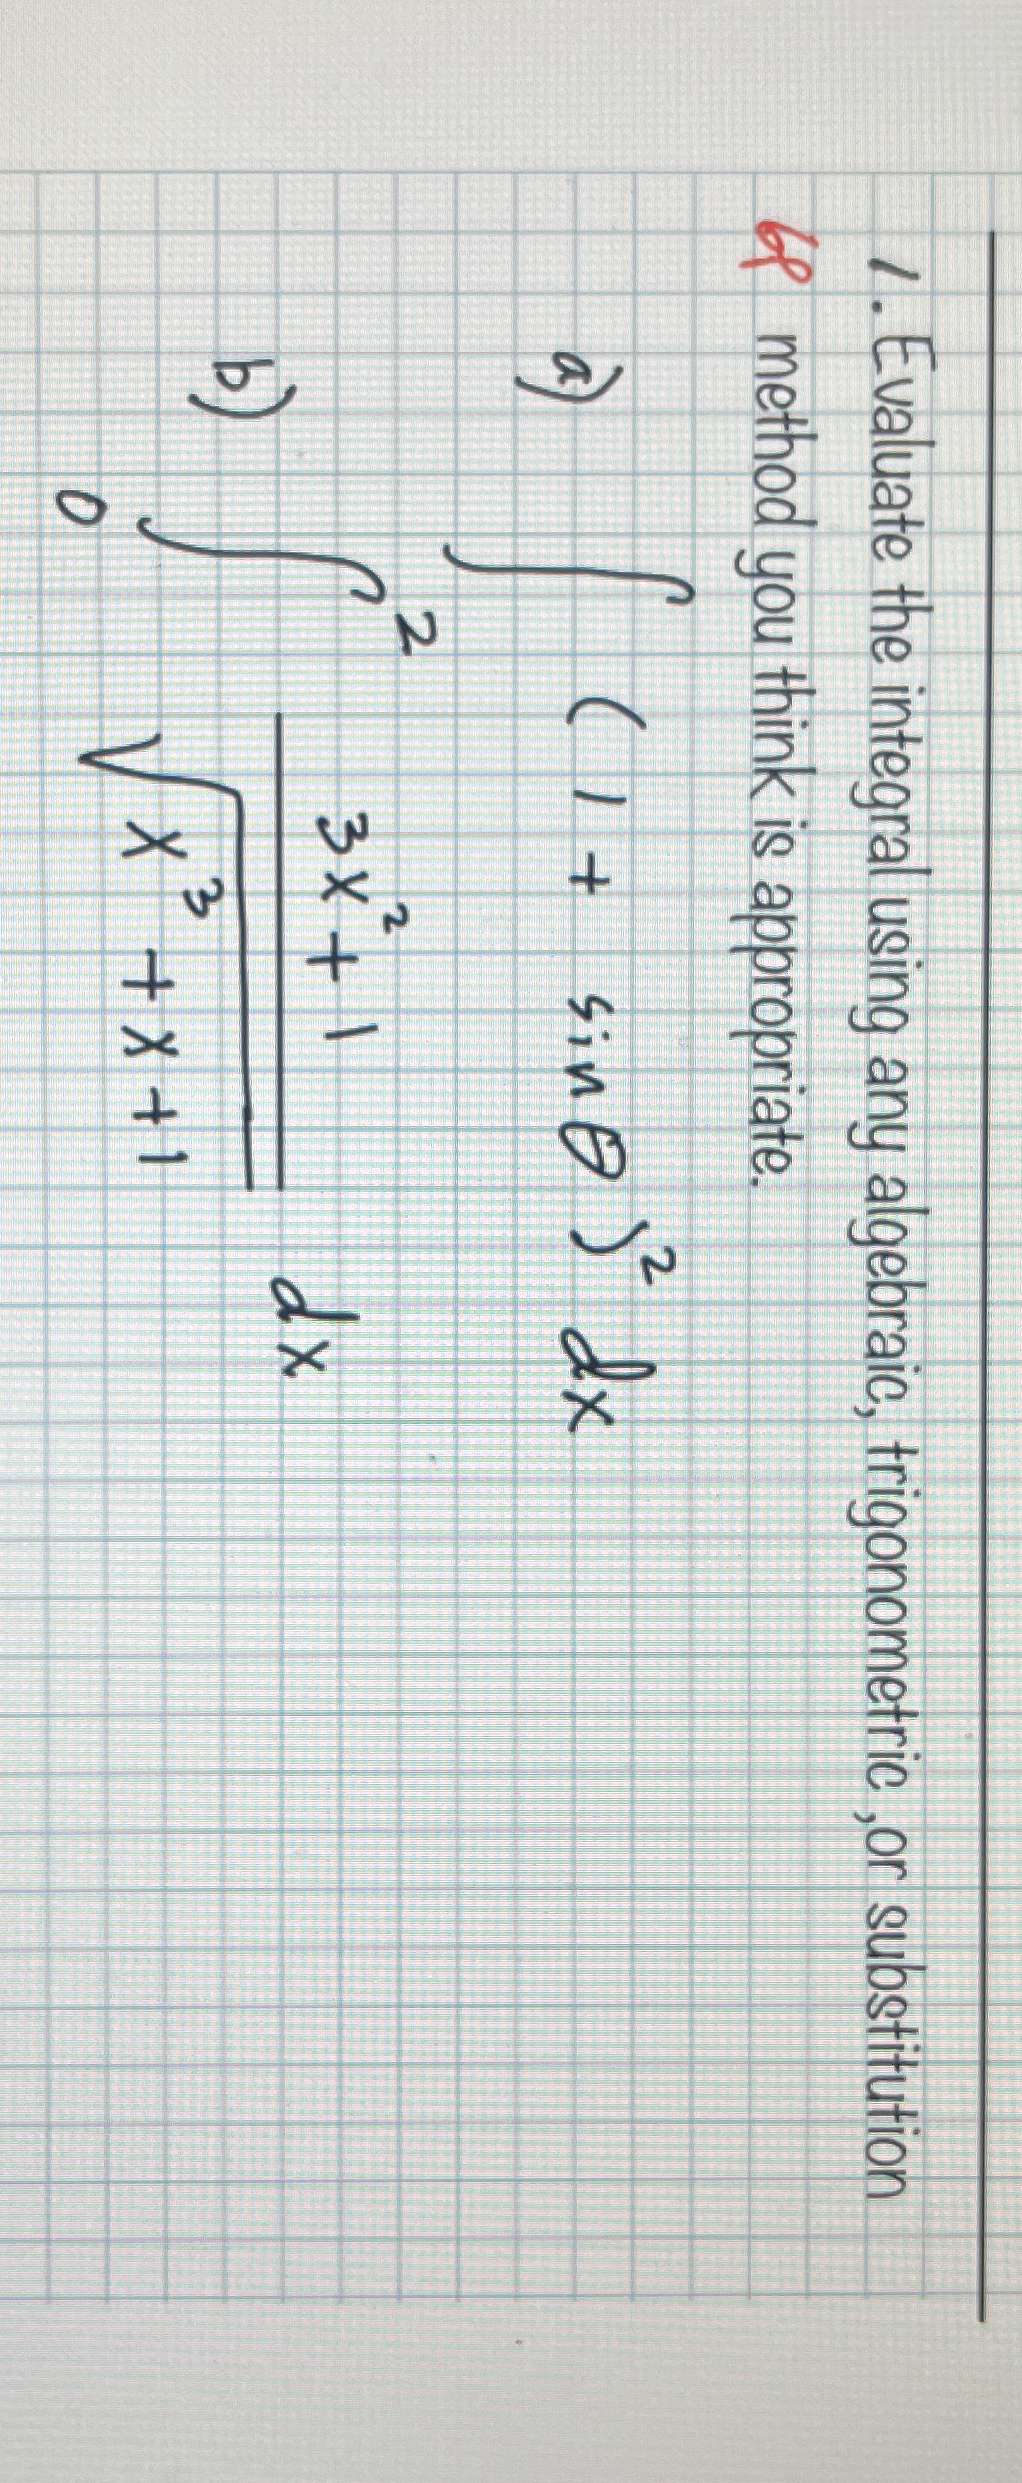 1. Evaluate the integral using any algebraic, trigonometric, or substitution
6p method you think is appropriate.
a) ∫ (1 + sinθ)² dx
b) ∫₀² (3x² + 1)/√(x³ + x + 1) dx